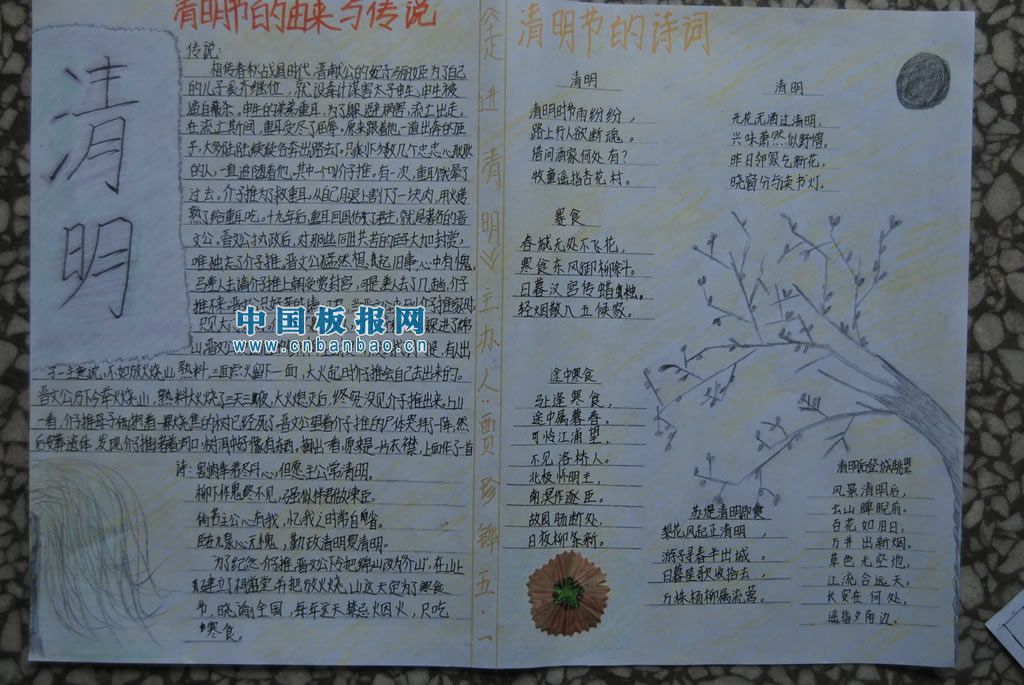 清明节的由来与传说
清明
传说:
相传春秋战国时代,晋献公的妃子骊姬为了自己
的儿子奚齐继位,就设毒计谋害太子申生,申生被
逼自杀。申生的弟弟重耳,为了躲避祸害,流亡出走。
在流亡期间,重耳受尽了屈辱。原来跟着他一道出奔的臣
子,大多陆陆续续各奔出路去了。只剩下少数几个忠心耿耿
的人,一直追随着他。其中一个叫介子推。有一次,重耳饿晕了
过去。介子推为了救重耳,从自己腿上割下了一块肉,用火烤
熟了给重耳吃。十九年后,重耳回国做了君主,就是著名的晋
文公。晋文公执政后,对那些同甘共苦的臣子大加封赏,
唯独忘了介子推。晋文公猛然想起旧事,心中有愧,
马上差人去请介子推上朝受赏封官。可是,差人去了几趟,介子
推不来。
了一主意说,不如放火烧山,三面点火留下一面,大火起时介子推会自己走出来的。
晋文公乃下令举火烧山,孰料大火烧了三天三夜,大火熄灭后,终究没见介子推出来。上山
一看,介子推母子俩抱着一棵烧焦的柳树已经死了。晋文公望着介子推的尸体哭拜一阵,然
后安葬遗体,发现介子推脊梁堵着个柳树树洞,洞里好像有东西。掏出一看原来是一片衣襟,上面作了一首
诗:割肉奉君尽丹心,但愿主公常清明。
柳下作鬼终不见,强似伴君做谏臣。
倘若主公心有我,忆我之时常自省。
臣在九泉心无愧,勤政清明复清明。
为了纪念介子推,晋文公下令把绵山改为“介山”,在山上
建立了祠堂,并把放火烧山这一天定为了寒食
节,晓谕全国,每年这天禁忌烟火,只吃
寒食。
走进清明
主办人:贾珍铧 五·一
清明节的诗词
清明
清明时节雨纷纷,
路上行人欲断魂。
借问酒家何处有?
牧童遥指杏花村。
清明
无花无酒过清明,
兴味萧然似野僧。
昨日邻家乞新花,
晓窗分与读书灯。
寒食
春城无处不飞花,
寒食东风御柳斜。
日暮汉宫传蜡烛,
轻烟散入五侯家。
途中寒食
马上逢寒食,
途中属暮春。
可怜江浦望,
不见洛桥人。
北极怀明主,
南溟作逐臣。
故园肠断处,
日夜柳条新。
苏堤清明即事
梨花风起正清明,
游子寻春半出城。
日暮笙歌收拾去,
万株杨柳属流莺。
清明后登城眺望
风景清明后,
云山睥睨前。
百花如旧日,
万井出新烟。
草色无空地,
江流合远天。
长安在何处,
遥指夕阳边。
中国板报网
www.cnbanbao.cn